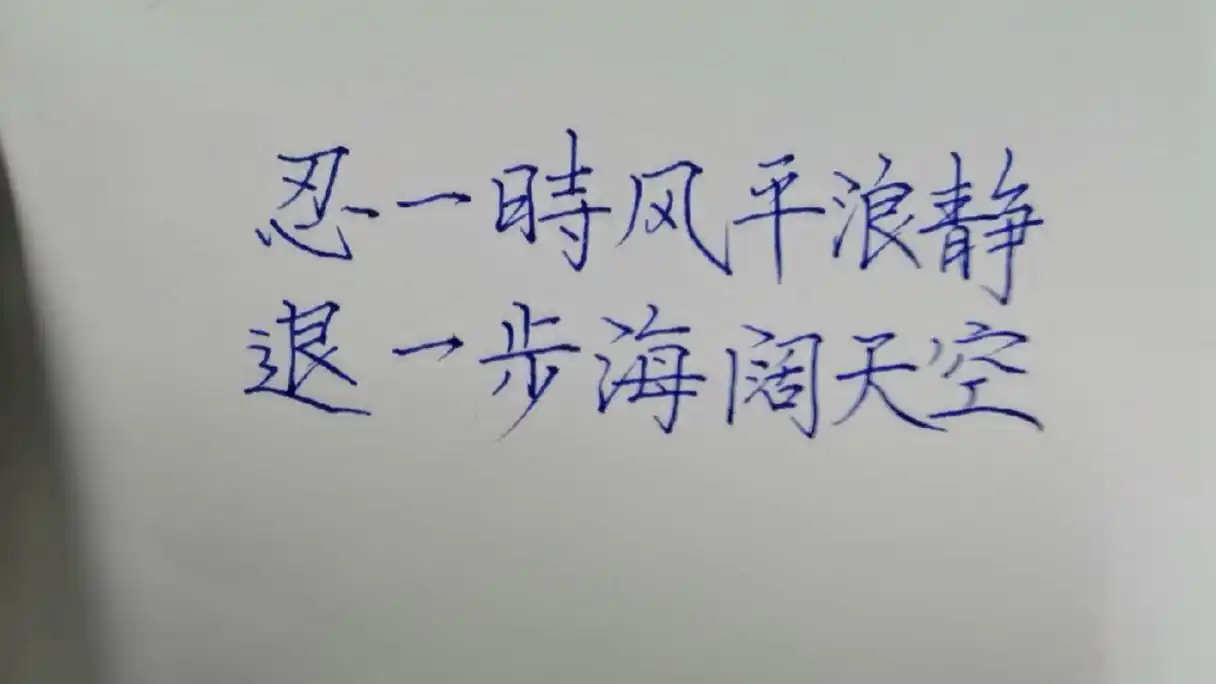 忍一時风平浪静
退一步海阔天空